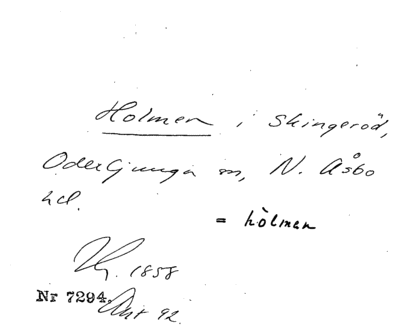 Holmen i Skingeröd,
Oderljunga sn, N. Åsbo
hd.
= hòlmen
Hg. 1858
Nr 7294. Ant 92.